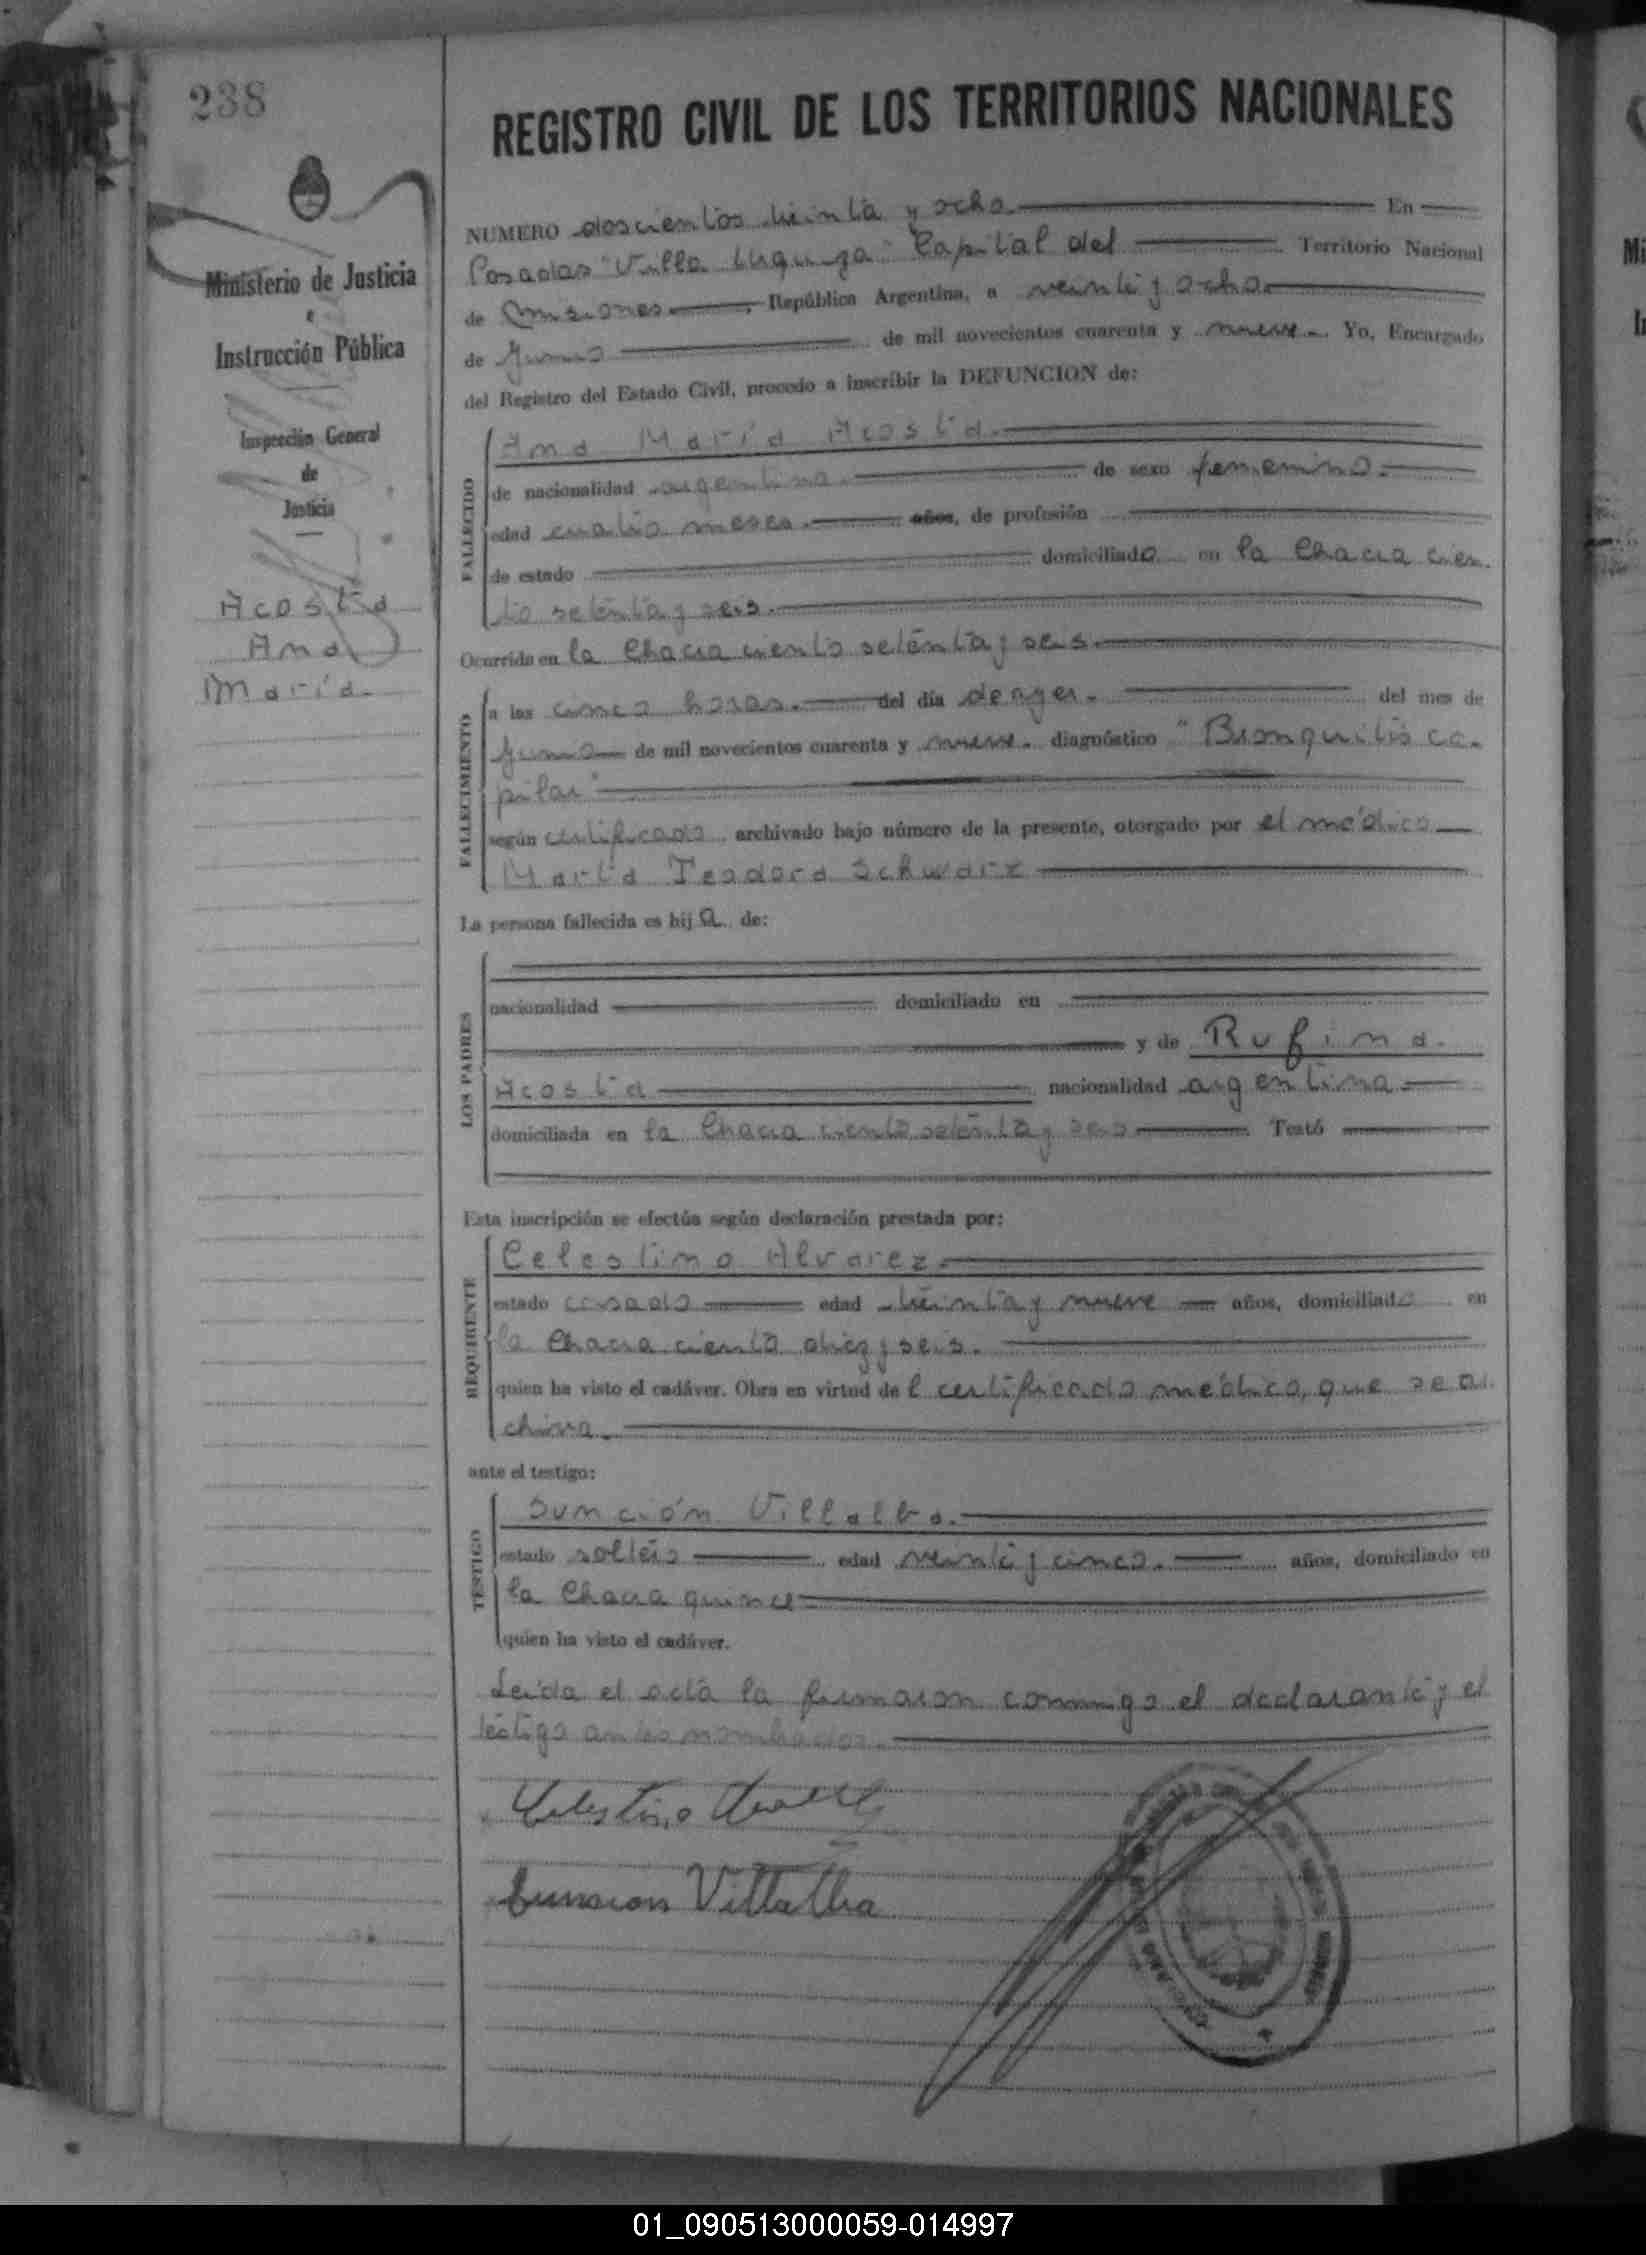 238
REGISTRO CIVIL DE LOS TERRITORIOS NACIONALES
Ministerio de Justicia
e
Instrucción Pública
Inspección General
de
Justicia
Acosta
Ana
María
NUMERO doscientos treinta y ocho En
Posadas "Villa Urquiza" Capital del Territorio Nacional
de Misiones República Argentina, a veinti y ocho
de Junio de mil novecientos cuarenta y nueve. Yo, Encargado
del Registro del Estado Civil, procedo a inscribir la DEFUNCION de:
FALLECIDO
Ana María Acosta.
de nacionalidad argentina de sexo femenino.
edad cuatro meses. años, de profesión
de estado domiciliado en la Chacra cien
to setenta y seis.
Ocurrido en la Chacra ciento setenta y seis.
FALLECIMIENTO
a las cinco horas. del día de ayer. del mes de
Junio de mil novecientos cuarenta y nueve. diagnóstico "Bronquitis ca-
pilar"
según certificado archivado bajo número de la presente, otorgado por el médico
Marta Teodora Schwarz
La persona fallecida es hija de:
LOS PADRES
nacionalidad domiciliado en
y de Rufina
Acosta nacionalidad argentina
domiciliada en la Chacra ciento setenta y seis Testó
Esta inscripción se efectúa según declaración prestada por:
REQUIRENTE
Celestino Alvarez.
estado casado edad treinta y nueve años, domiciliado en
la Chacra ciento diez y seis.
quien ha visto el cadáver. Obra en virtud del certificado médico, que se ar
chiva.
ante el testigo:
TESTIGO
Sunción Villalba.
estado soltero edad veinti y cinco. años, domiciliado en
la Chacra quince
quien ha visto el cadáver.
Leída el acta la firmaron conmigo el declarante y el
testigo antes nombrados.
Celestino Alvarez
Suncion Villalba
01_090513000059-014997